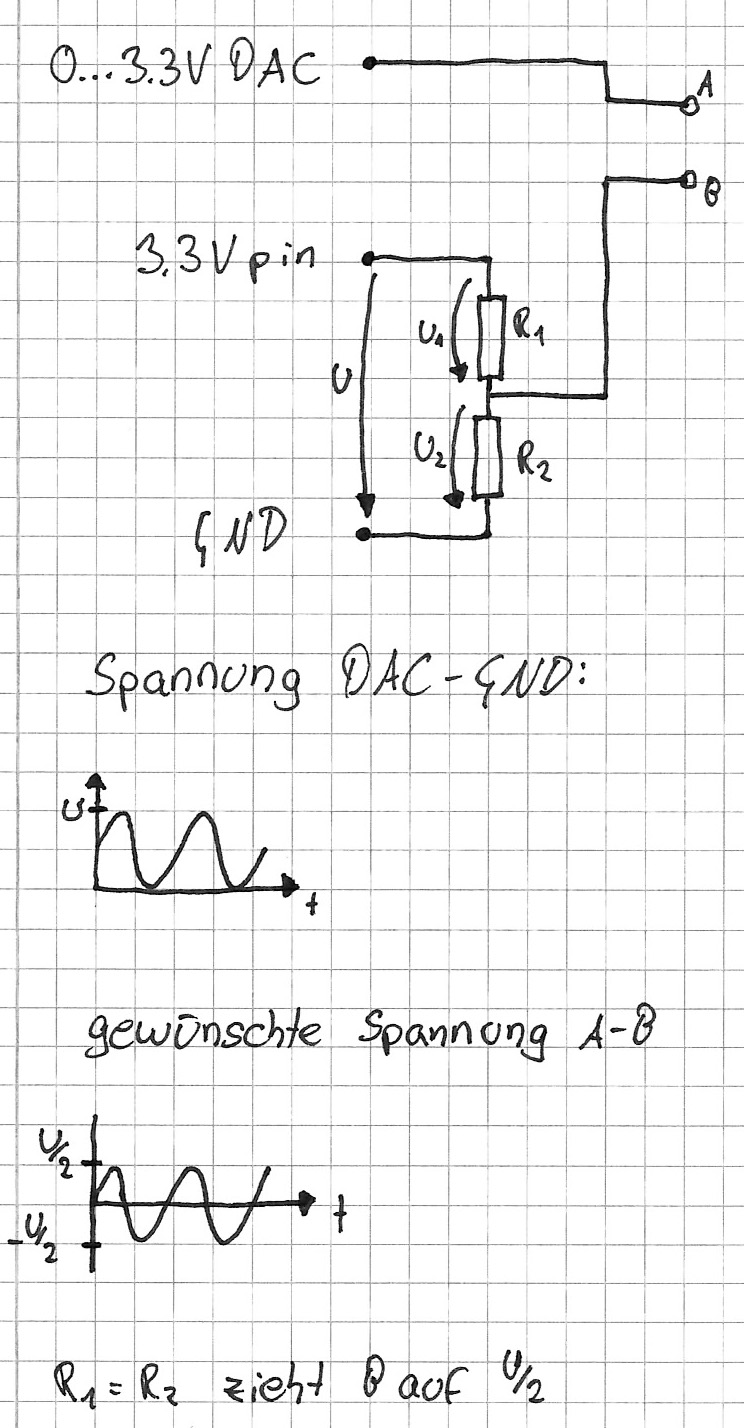 0...3.3V DAC
A
B
3.3V pin
U₁
R₁
U
U₂
R₂
GND
Spannung DAC-GND:
U
t
gewünschte Spannung A-B
U/2
t
-U/2
R₁ = R₂ zieht B auf U/2